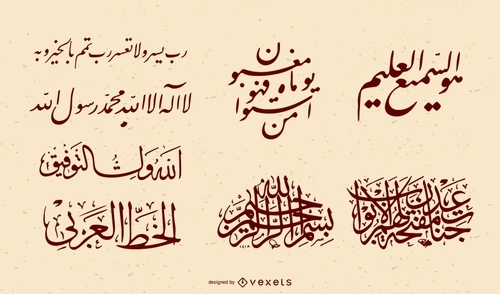 رب يسر ولا تعسر رب تمم بالخير وبه
لا اله الا الله محمد رسول الله
الله ولي التوفيق
الخط العربي
من استوا يوماه فهو مغبون
بسم الله الرحمن الرحيم
هو السميع العليم
جنات عدن مفتحة لهم الابواب
designed by vexels